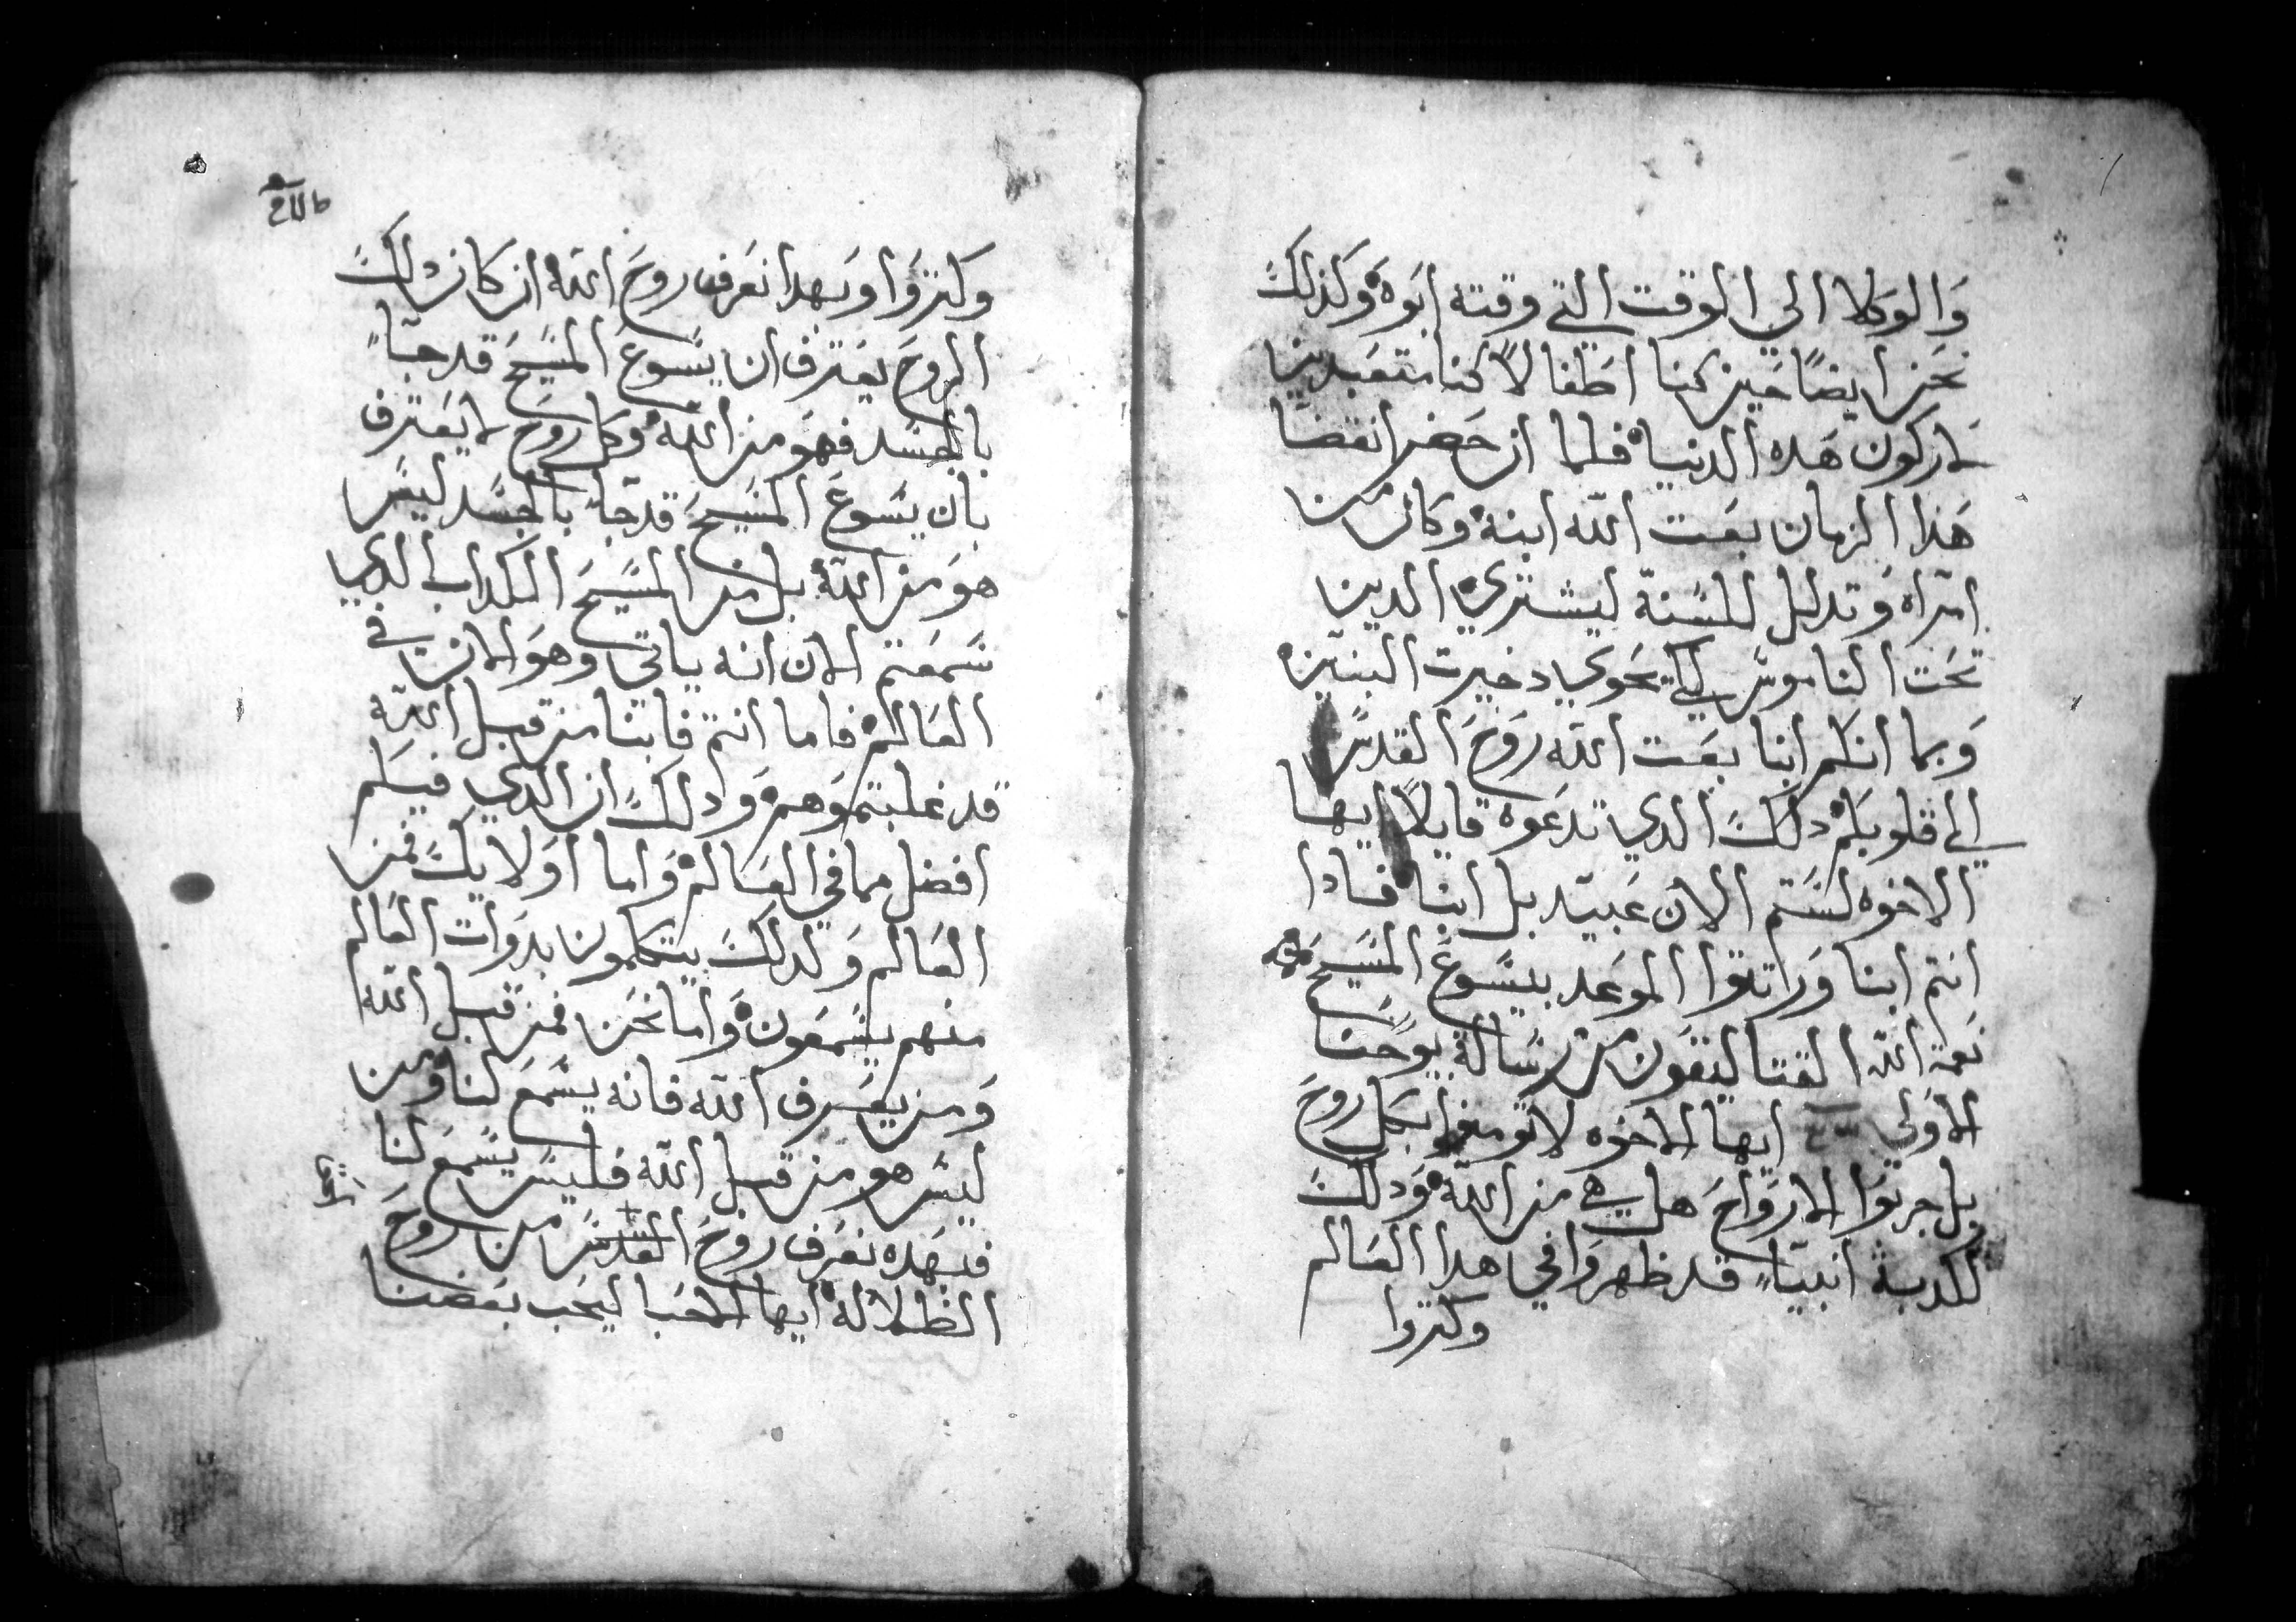 والوكلا الي الوقت التي وقته ابوه وكذلك
نحن ايضًا حين كنا اطفالاً كنا متعبدين
لاركون هده الدنيا فلما ان حضر انقضا
هذا الزمان بعت الله ابنه وكان من
امراه وتدلل للسنة ليشتري الدين
تحت الناموس لكي نحوي دخيرت البنين
وبما انكم ابنا بعت الله روح القدس
الي قلوبكم دلك الدي تدعوه قايلاً ايها
الاخوه لستم الان عبيد بل ابنا فادا
انتم ابنا وراتوا الموعد بيسوع المسيح
نعمة الله القتاليقون من رسالة يوحنا
الاولي ايها الاخوه لا تومنوا بكل روح
بل جربوا الارواح هل هي من الله ودلك
لكدبة انبياء قد ظهروا في هدا العالم
وكتروا
وكتروا وبهدا نعرف روح الله ان كان دلك
الروح يعترف ان يسوع المسيح قد جاء
بالجسد فهو من الله وكل روح لا يعترف
بان يسوع المسيح قد جاء بالجسد ليس
هو من الله بل من المسيح الكداب الدي
سمعتم الان انه ياتي وهو الان في
العالم فاما انتم فابنا من قبل الله
قد غلبتموهم ودلك ان الدي فيكم
افضل مما في العالم واما اولايك فمن
العالم ولدلك يتكلمون بدوات العالم
منهم يسمعون واما نحن فمن قبل الله
ومن يعرف الله فانه يسمع لنا ومن
ليس هو من قبل الله فليس يسمع لنا
فبهده نعرف روح القدس من روح
الظلاله ايها الاحبا ليحب بعضنا